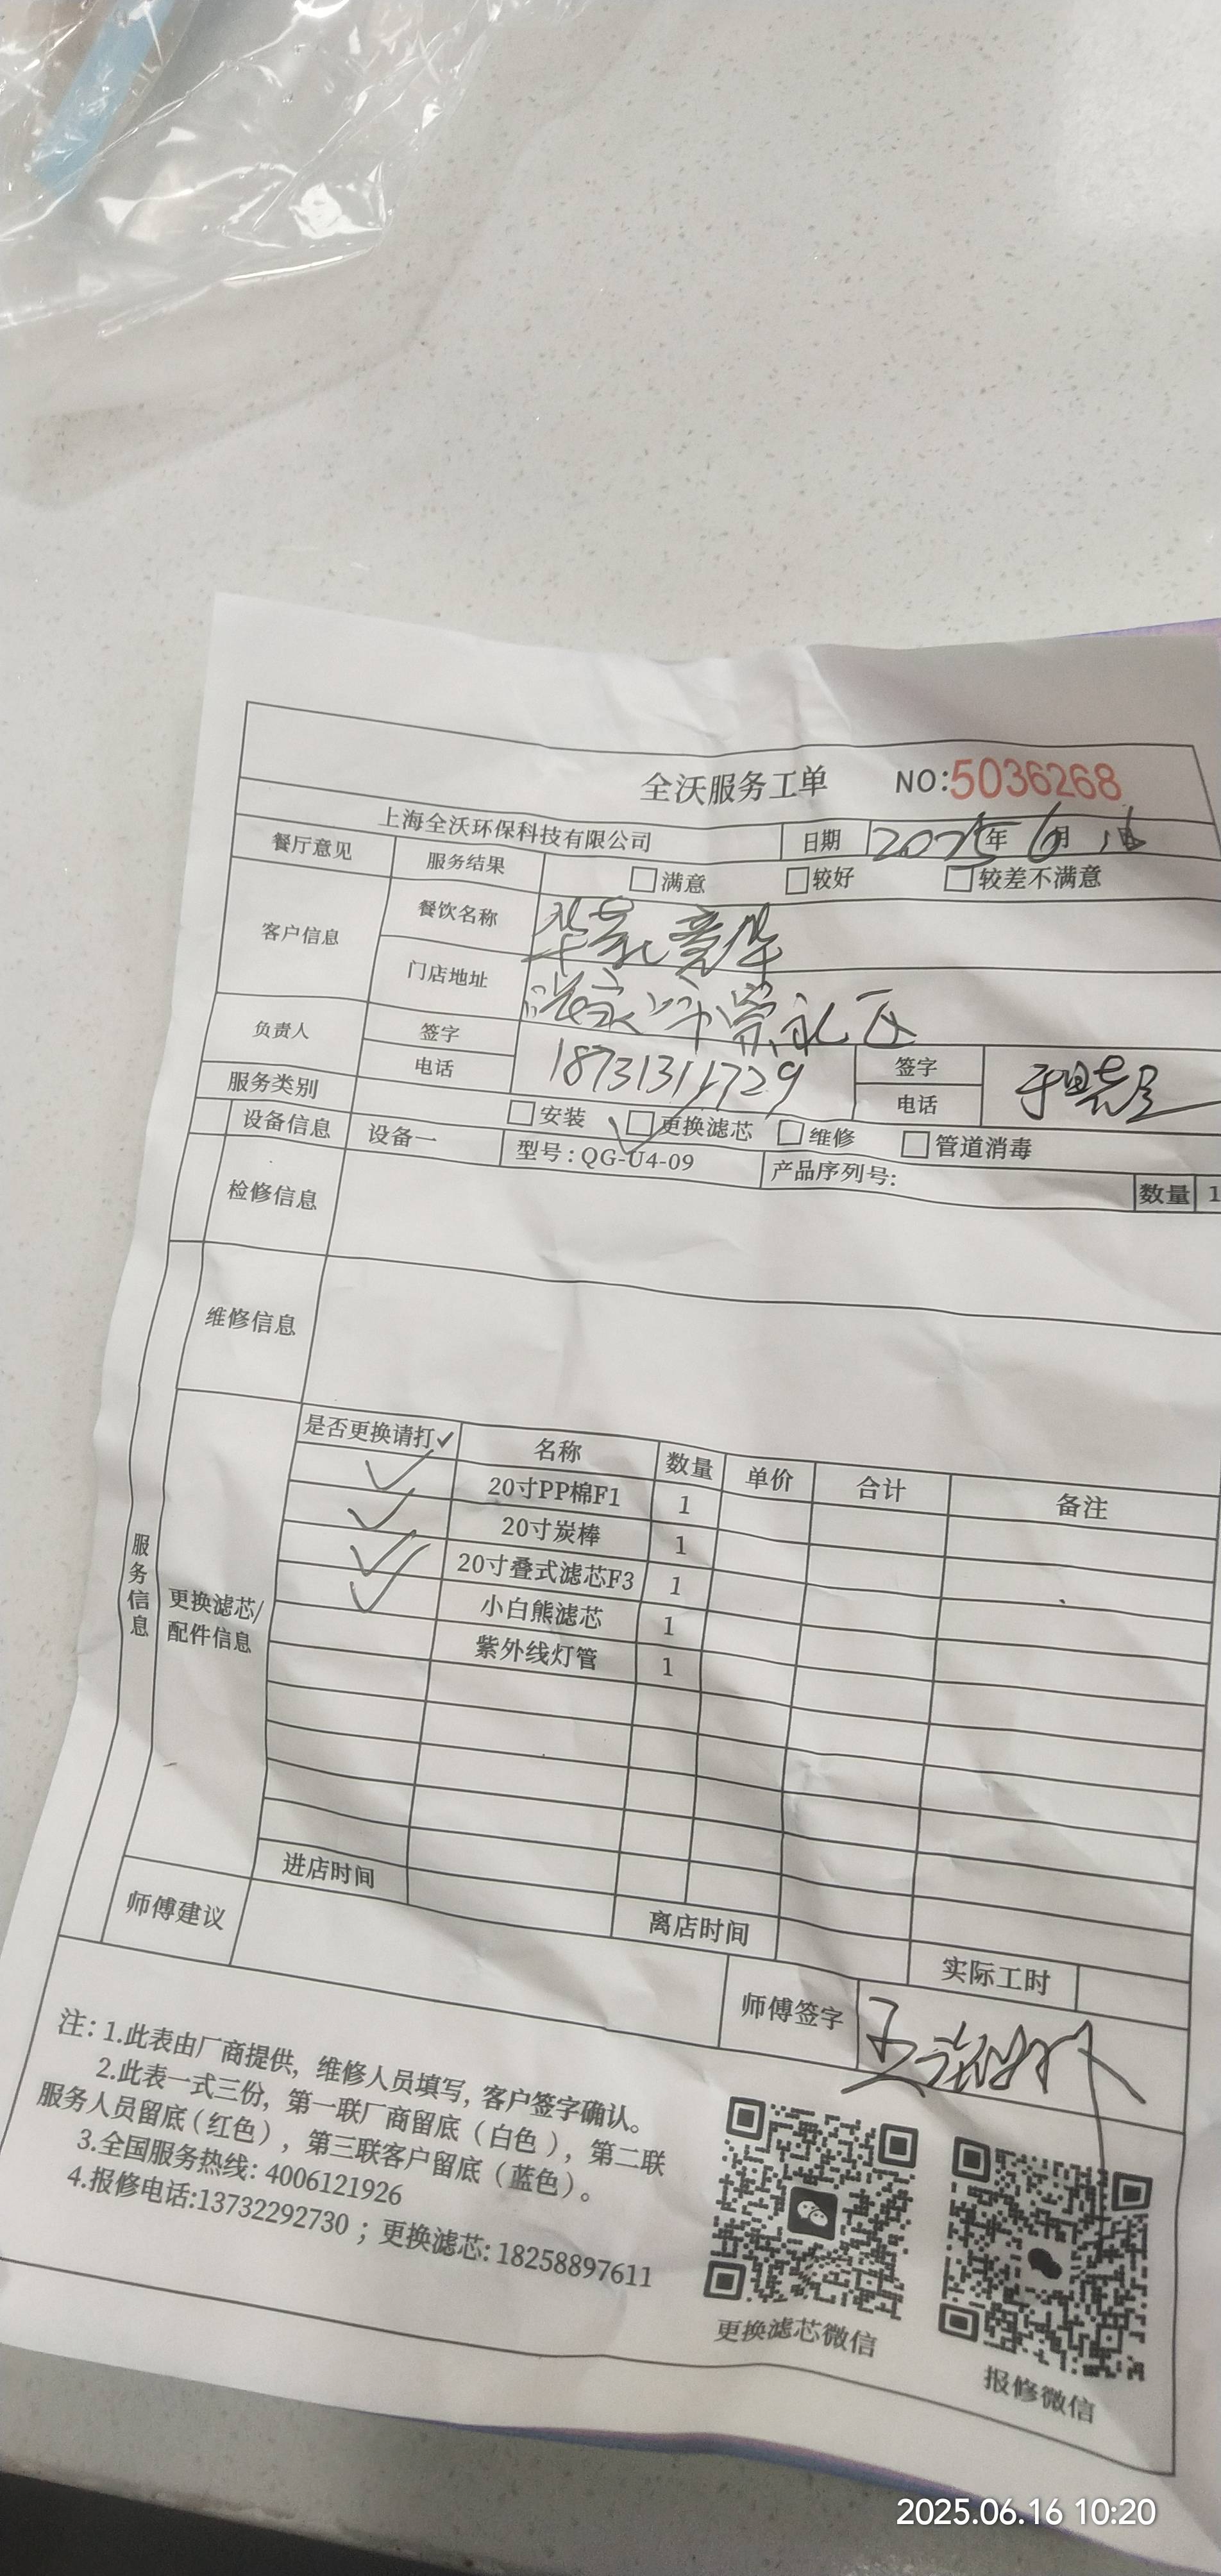 全沃服务工单 NO:5036268
上海全沃环保科技有限公司 日期 2025年6月
餐厅意见 服务结果 满意 较好 较差不满意
客户信息 餐饮名称
门店地址 张家口市崇礼区
负责人 签字 签字
电话 18731311729 电话
服务类别 安装 更换滤芯 维修 管道消毒
设备信息 设备一 型号:QG-U4-09 产品序列号: 数量 1
检修信息
维修信息
服务信息
更换滤芯/
配件信息
是否更换请打✓ 名称 数量 单价 合计 备注
✓ 20寸PP棉F1 1
✓ 20寸炭棒 1
✓ 20寸叠式滤芯F3 1
✓ 小白熊滤芯 1
紫外线灯管 1
进店时间 离店时间 实际工时
师傅建议 师傅签字
注: 1.此表由厂商提供, 维修人员填写, 客户签字确认。
2.此表一式三份, 第一联厂商留底 (白色), 第二联
服务人员留底(红色), 第三联客户留底 (蓝色)。
3.全国服务热线: 4006121926
4.报修电话:13732292730 ; 更换滤芯: 18258897611
更换滤芯微信
报修微信
2025.06.16 10:20